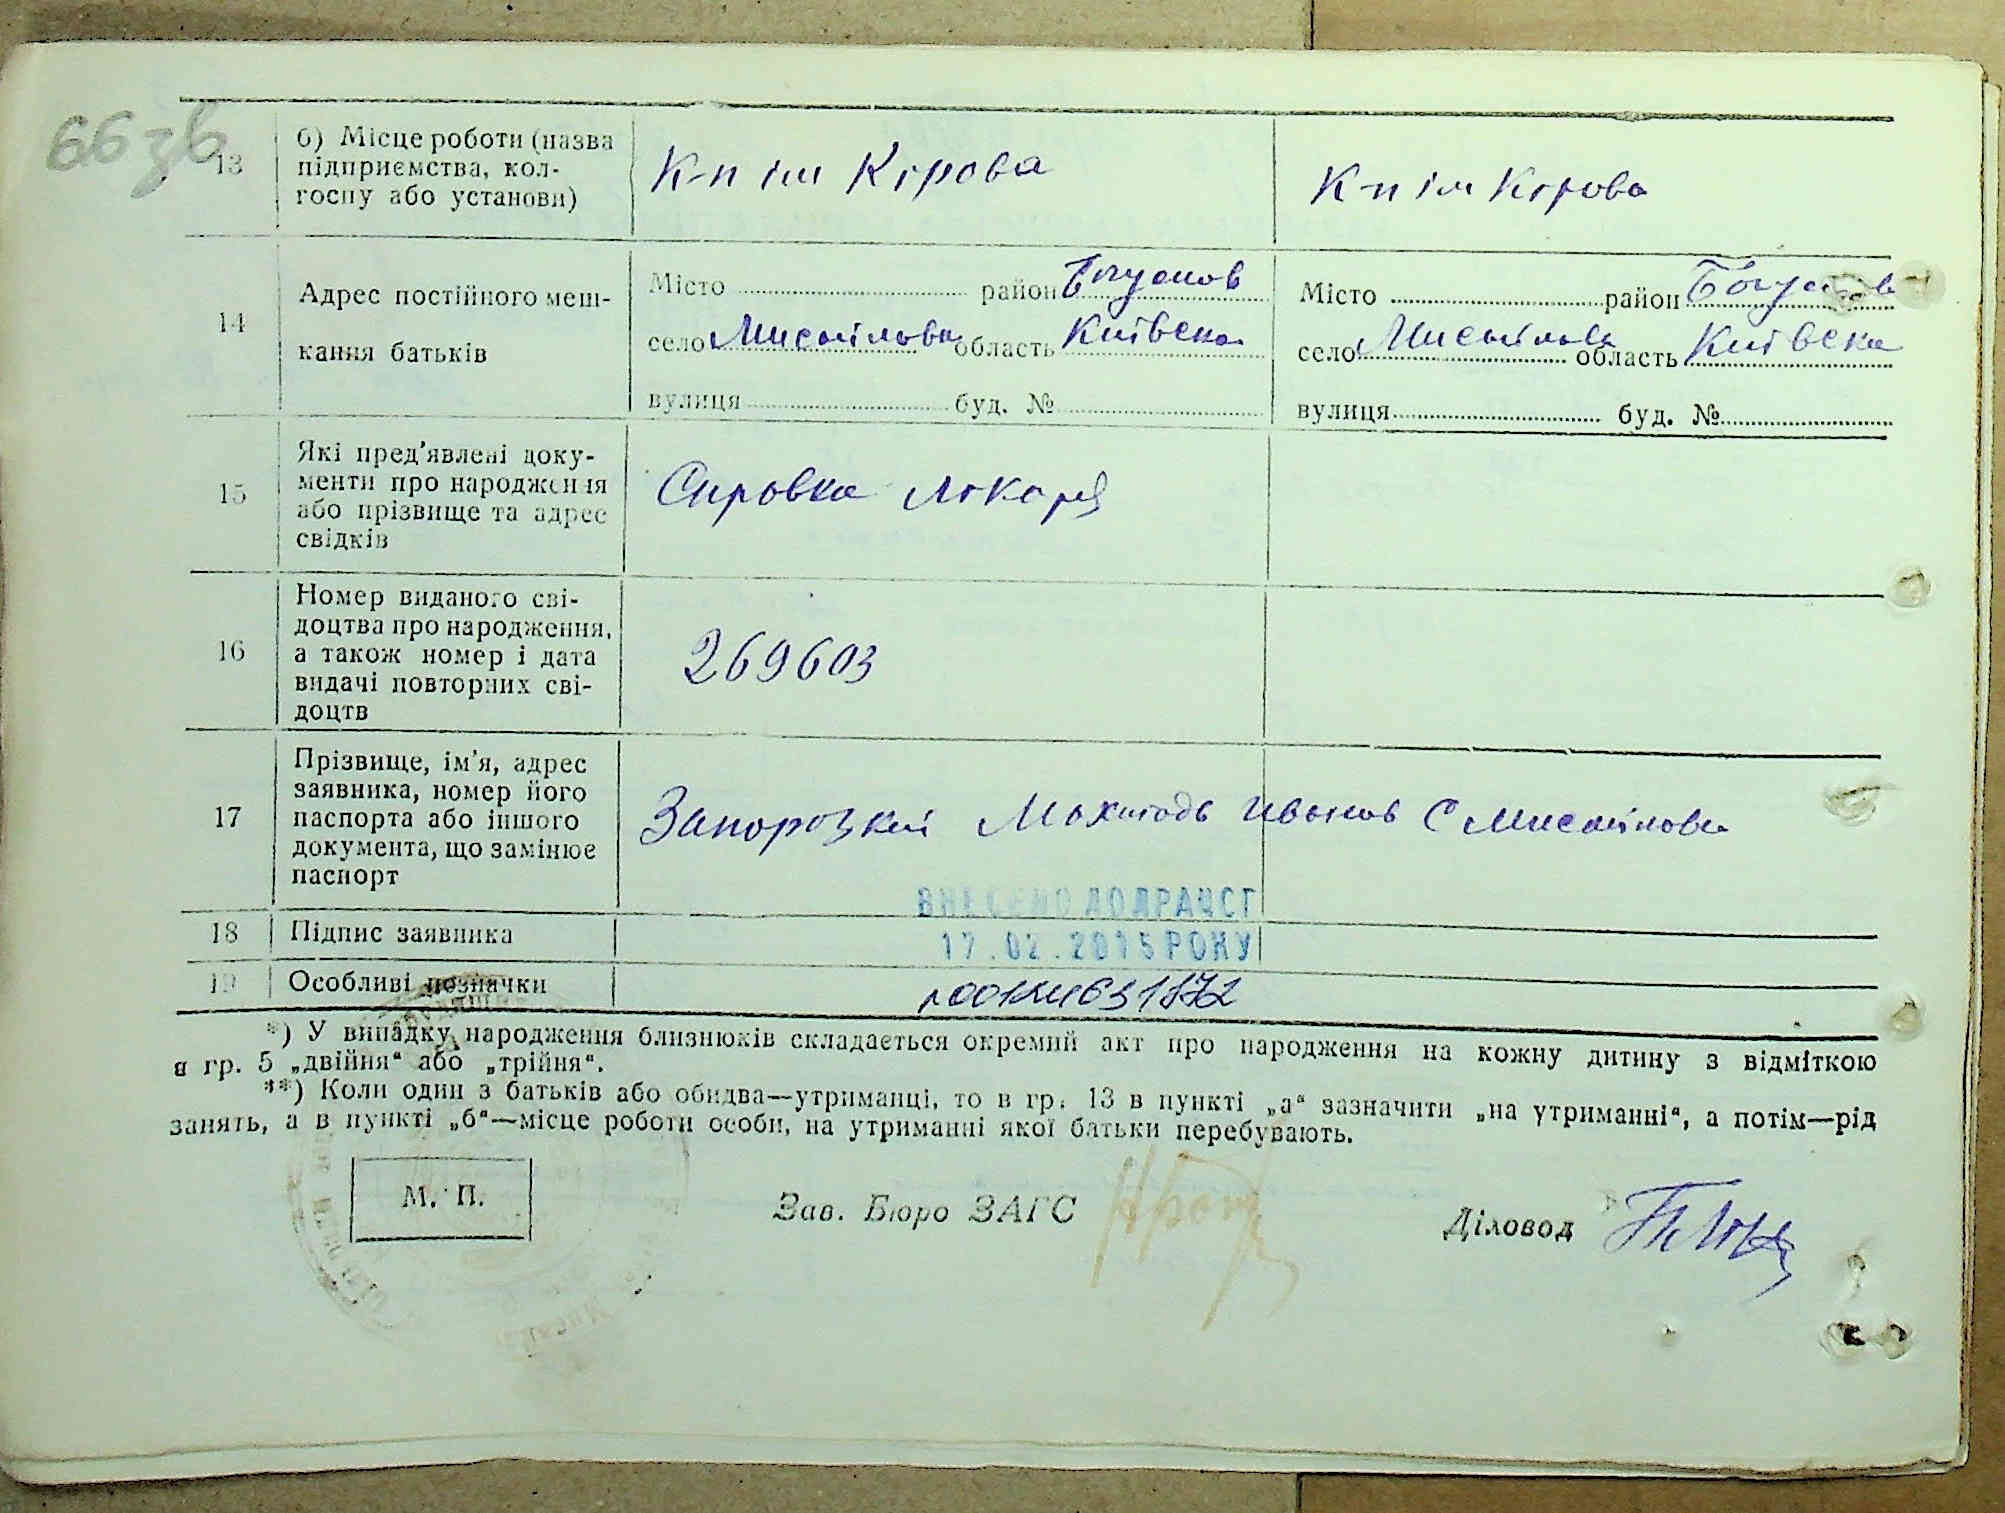 66 зв
13
б) Місце роботи (назва
підприємства, кол-
госпу або установи)
К-п ім Кірова
К-п ім Кірова
14
Адрес постійного меш-
кання батьків
Місто район Богуслов
село Мисайловка область Київска
вулиця буд. №
Місто район Богуслов
село Мисайловка область Київска
вулиця буд. №
15
Які пред'явлені доку-
менти про народження
або прізвище та адрес
свідків
Справка лікаря
16
Номер виданого сві-
доцтва про народження,
а також номер і дата
видачі повторних сві-
доцтв
269603
17
Прізвище, ім'я, адрес
заявника, номер його
паспорта або іншого
документа, що замінює
паспорт
Запорозкий Иванов С Мисайловка
ВНЕСЕНО ДО ДРАЦСГ
18
Підпис заявника
17.02.2015 РОКУ
19
Особливі позначки
*) У випадку народження близнюків складається окремий акт про народження на кожну дитину з відміткою
в гр. 5 „двійня“ або „трійня“.
**) Коли один з батьків або обидва—утриманці, то в гр. 13 в пункті „а“ зазначити „на утриманні“, а потім—рід
занять, а в пункті „б“—місце роботи особи, на утриманні якої батьки перебувають.
М. П.
Зав. Бюро ЗАГС
Діловод